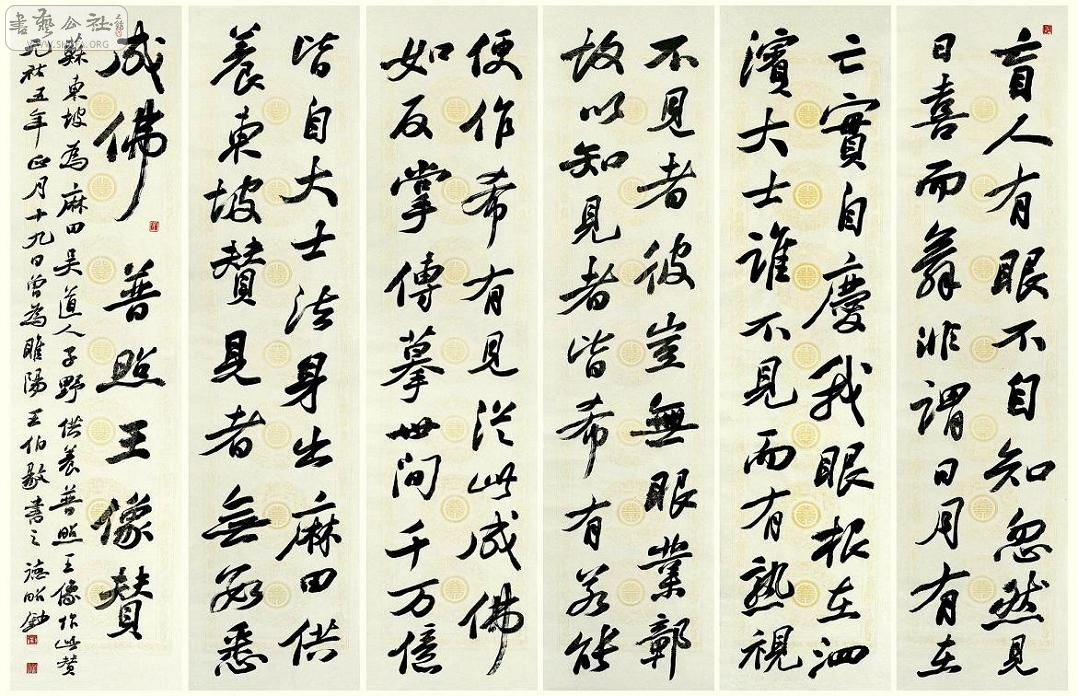 盲人有眼不自知忽然見
日喜而舞非謂日月有在
亡實自慶我眼根在泗
濱大士誰不見而有熟視
不見者彼豈無眼業鄣
故以知見者皆希有若能
便作希有見從此成佛
如反掌傳摹世間千万億
皆自大士法身出麻田供
養東坡贊見者無數悉
成佛 普照王像贊
蘇東坡為麻田吳道人子野供養普照王像作此贊
元祐五年正月十九日曾為睢陽王伯敭書之
書藝公社